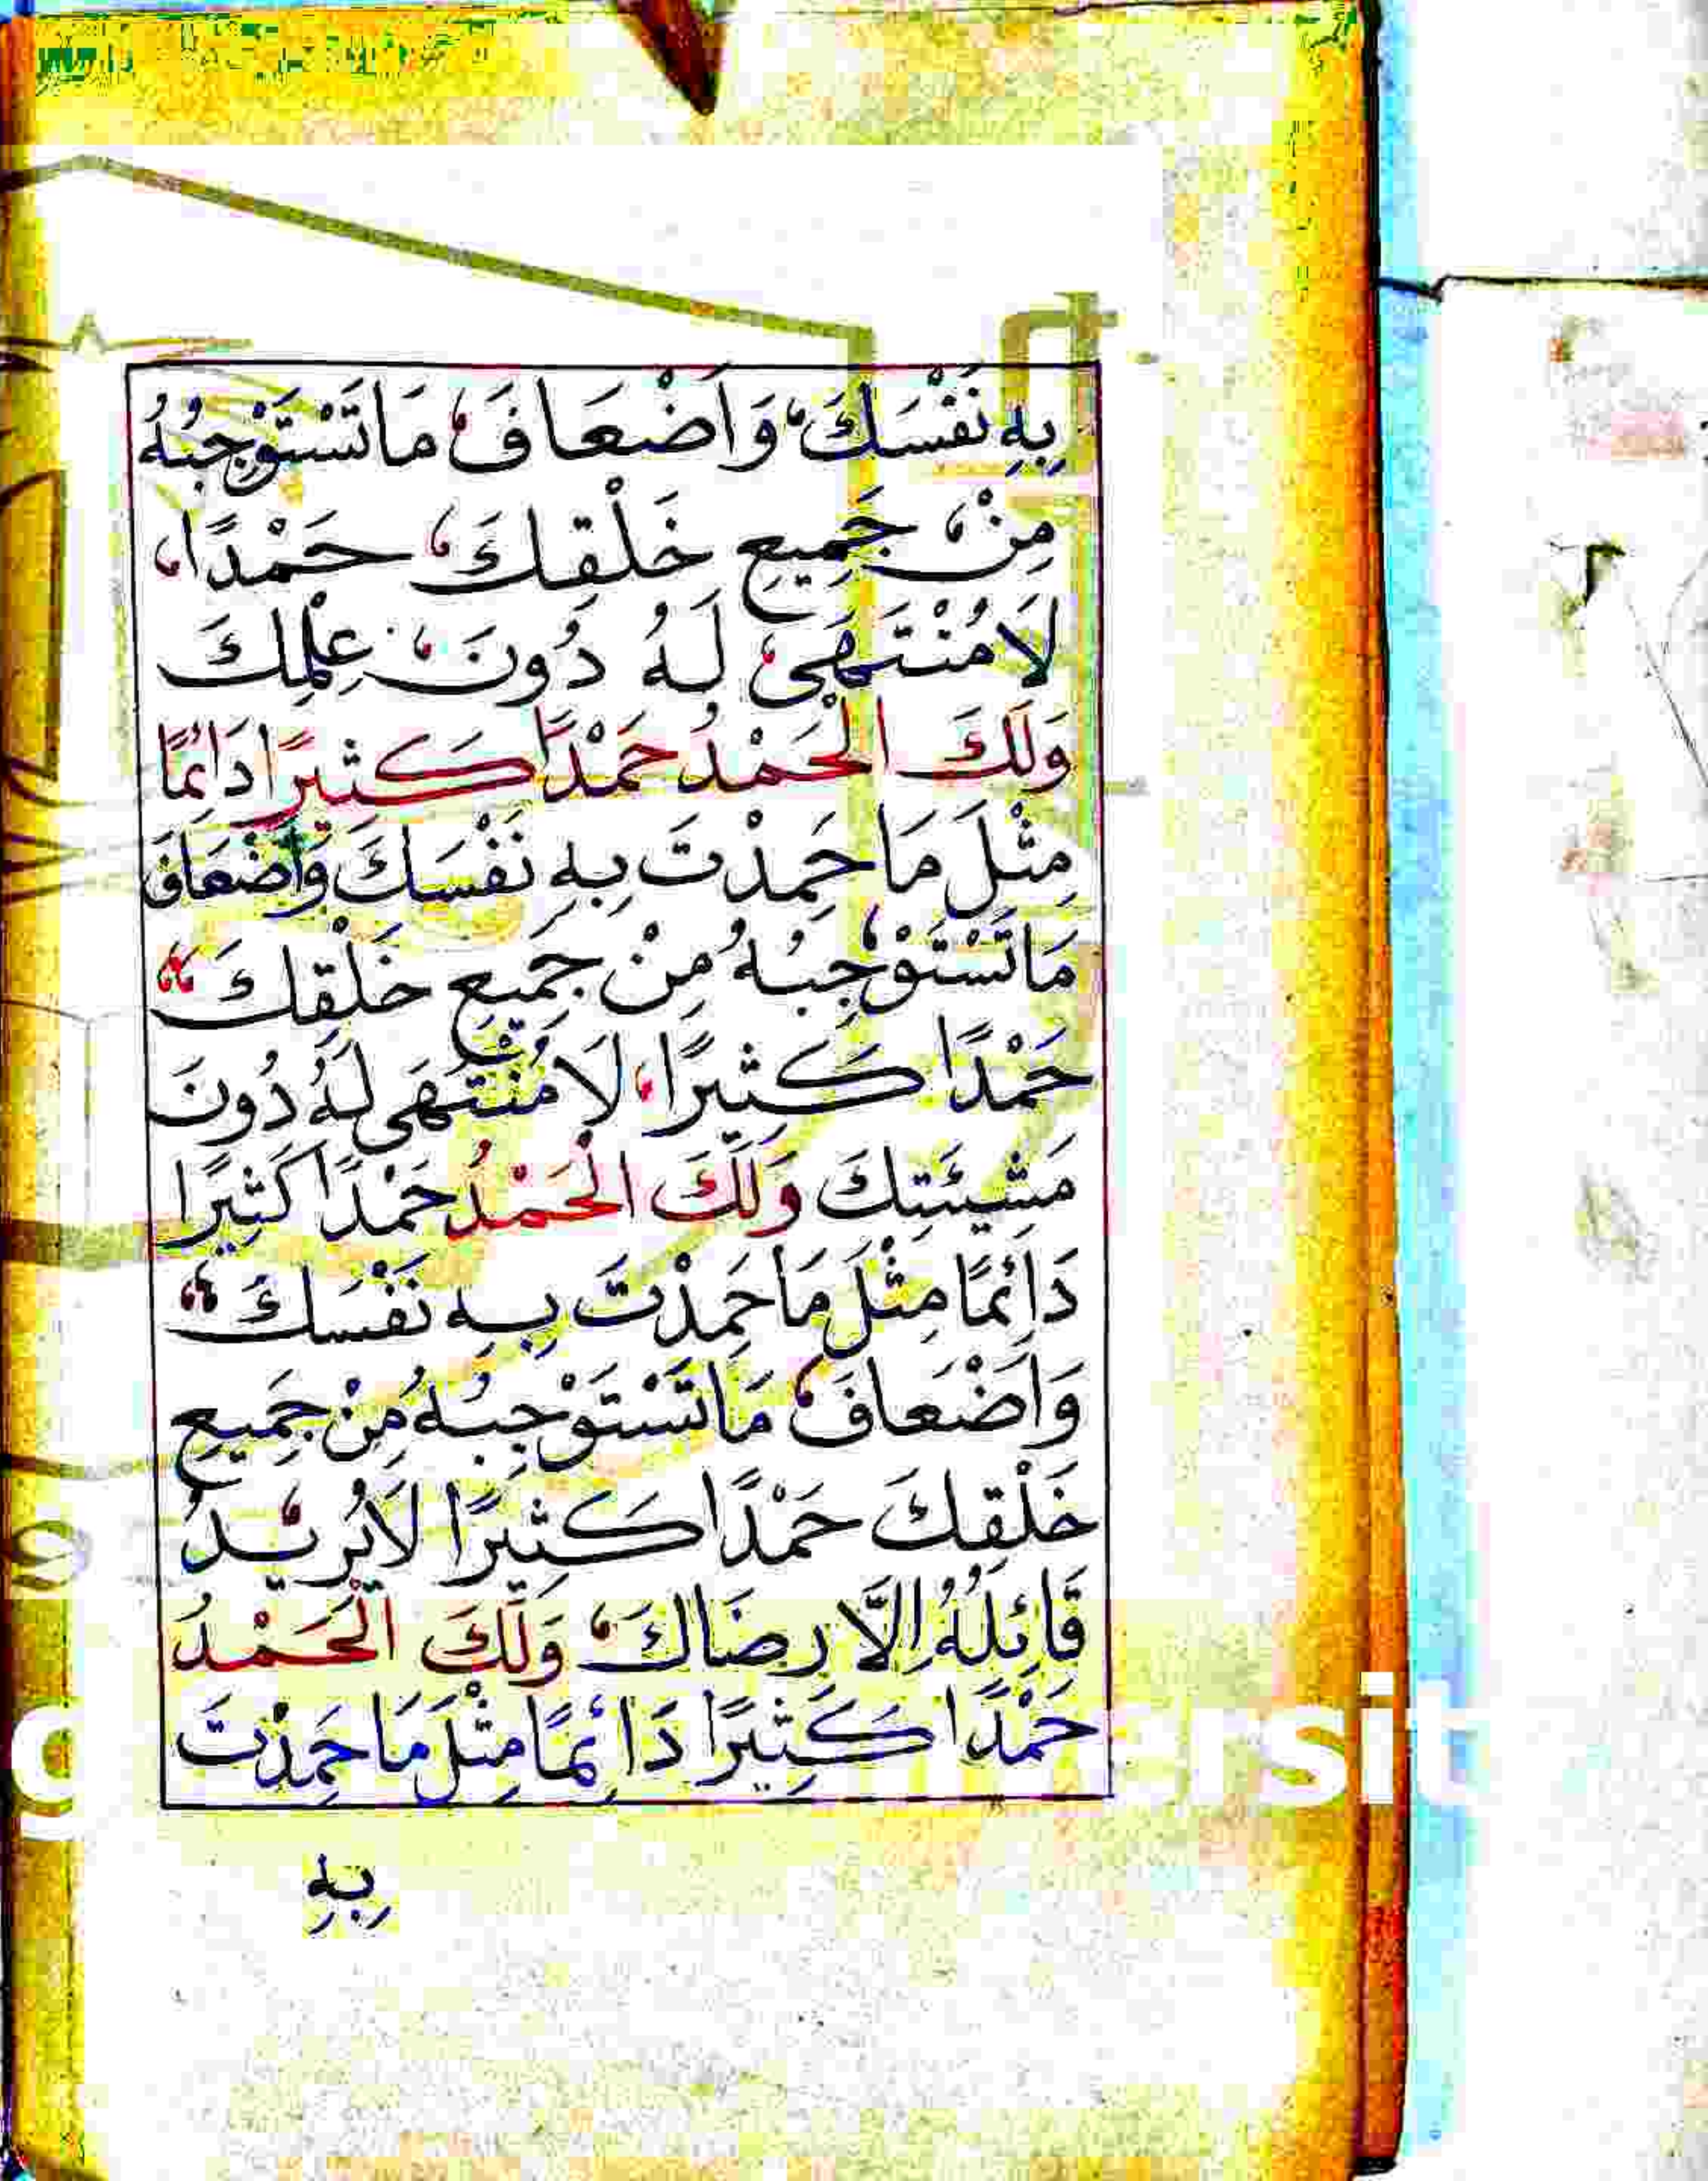 بِهِ نَفْسَكَ وَاَضْعَافَ مَا تَسْتَوْجِبُهُ
مِنْ جَمِيعِ خَلْقِكَ حَمْدًا
لَا مُنْتَهَى لَهُ دُونَ عِلْمِكَ
وَلَكَ الْحَمْدُ حَمْدًا كَثِيرًا دَائِمًا
مِثْلَ مَا حَمِدْتَ بِهِ نَفْسَكَ وَاَضْعَافَ
مَا تَسْتَوْجِبُهُ مِنْ جَمِيعِ خَلْقِكَ
حَمْدًا كَثِيرًا لَا مُنْتَهَى لَهُ دُونَ
مَشِيئَتِكَ وَلَكَ الْحَمْدُ حَمْدًا كَثِيرًا
دَائِمًا مِثْلَ مَا حَمِدْتَ بِهِ نَفْسَكَ
وَاَضْعَافَ مَا تَسْتَوْجِبُهُ مِنْ جَمِيعِ
خَلْقِكَ حَمْدًا كَثِيرًا لَا يُرِيدُ
قَائِلُهُ اِلَّا رِضَاكَ وَلَكَ الْحَمْدُ
حَمْدًا كَثِيرًا دَائِمًا مِثْلَ مَا حَمِدْتَ
بِهِ